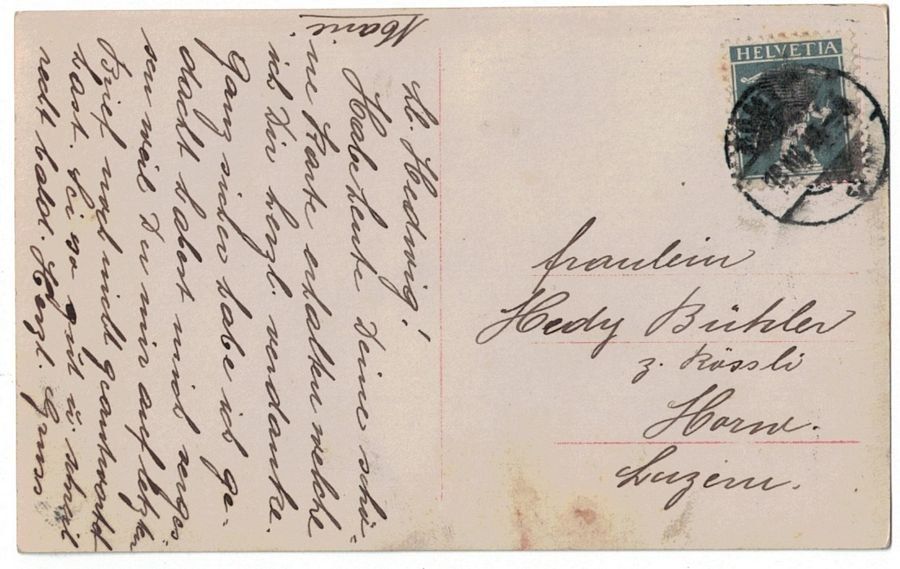 Lb. Hedwig!
Habe heute Deine schö-
ne Karte erhalten welche
ich Dir herzl. verdanke.
Ganz sicher habe ich ge-
dacht habest mich verges-
sen weil Du mir auf letzten
Brief noch nicht geantwortet
hast. Sei so gut u. schreib
recht bald. Herzl. Gruss
Marie
HELVETIA
fraulein
Hedy Bühler
z. Rössli
Horw.
Luzern.